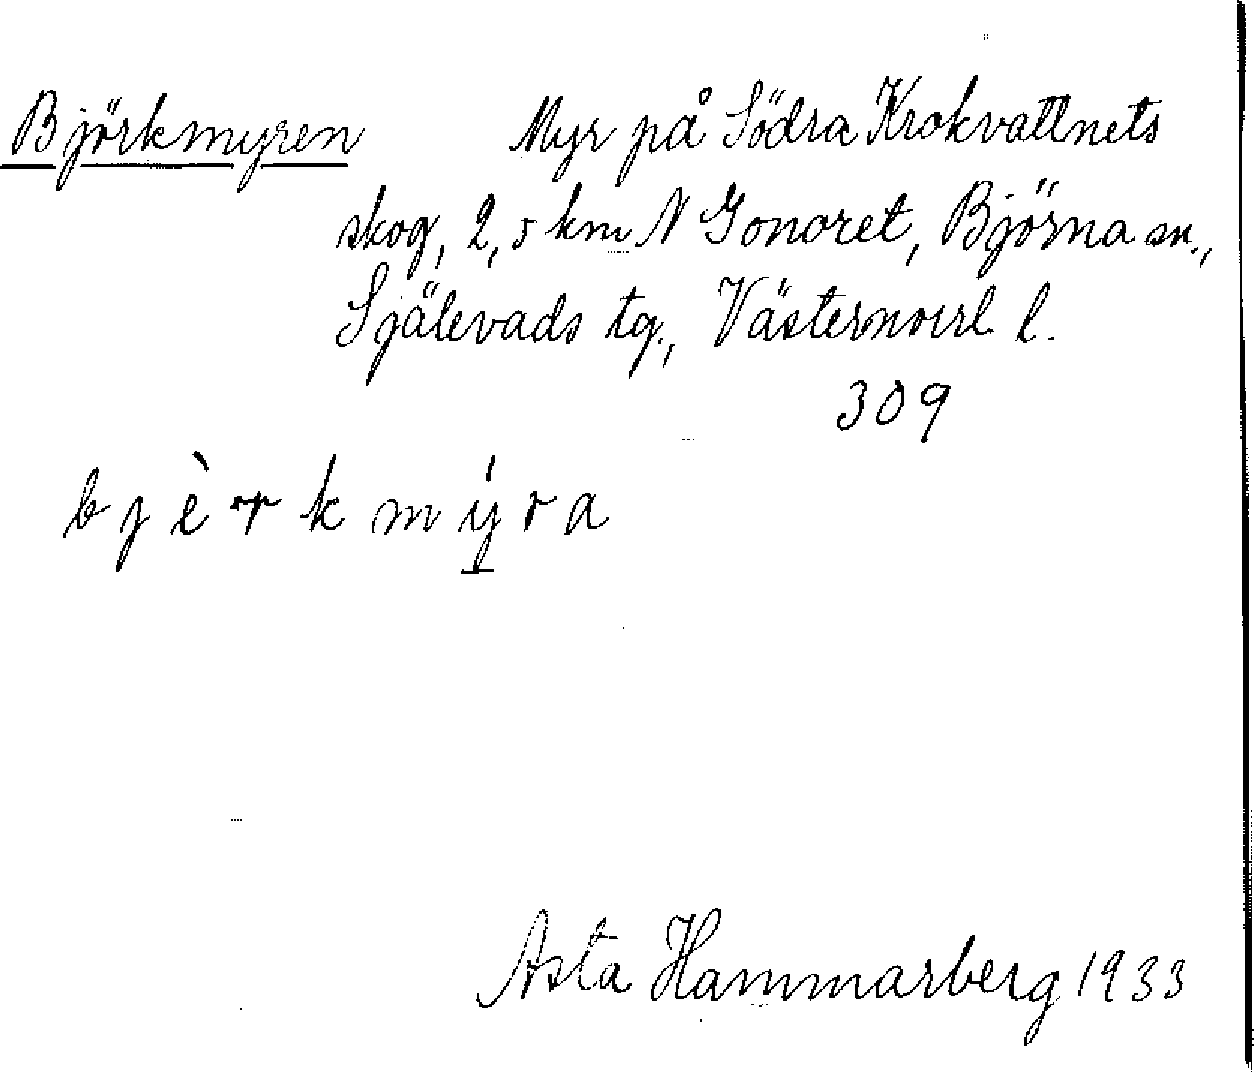 Björkmyren Myr på Södra Krokvattnets
skog, 2,5 km N Gonoret, Björna sn.,
Själevads tg., Västernorrl l.
309
bjèrkmýra
Asta Hammarberg 1933